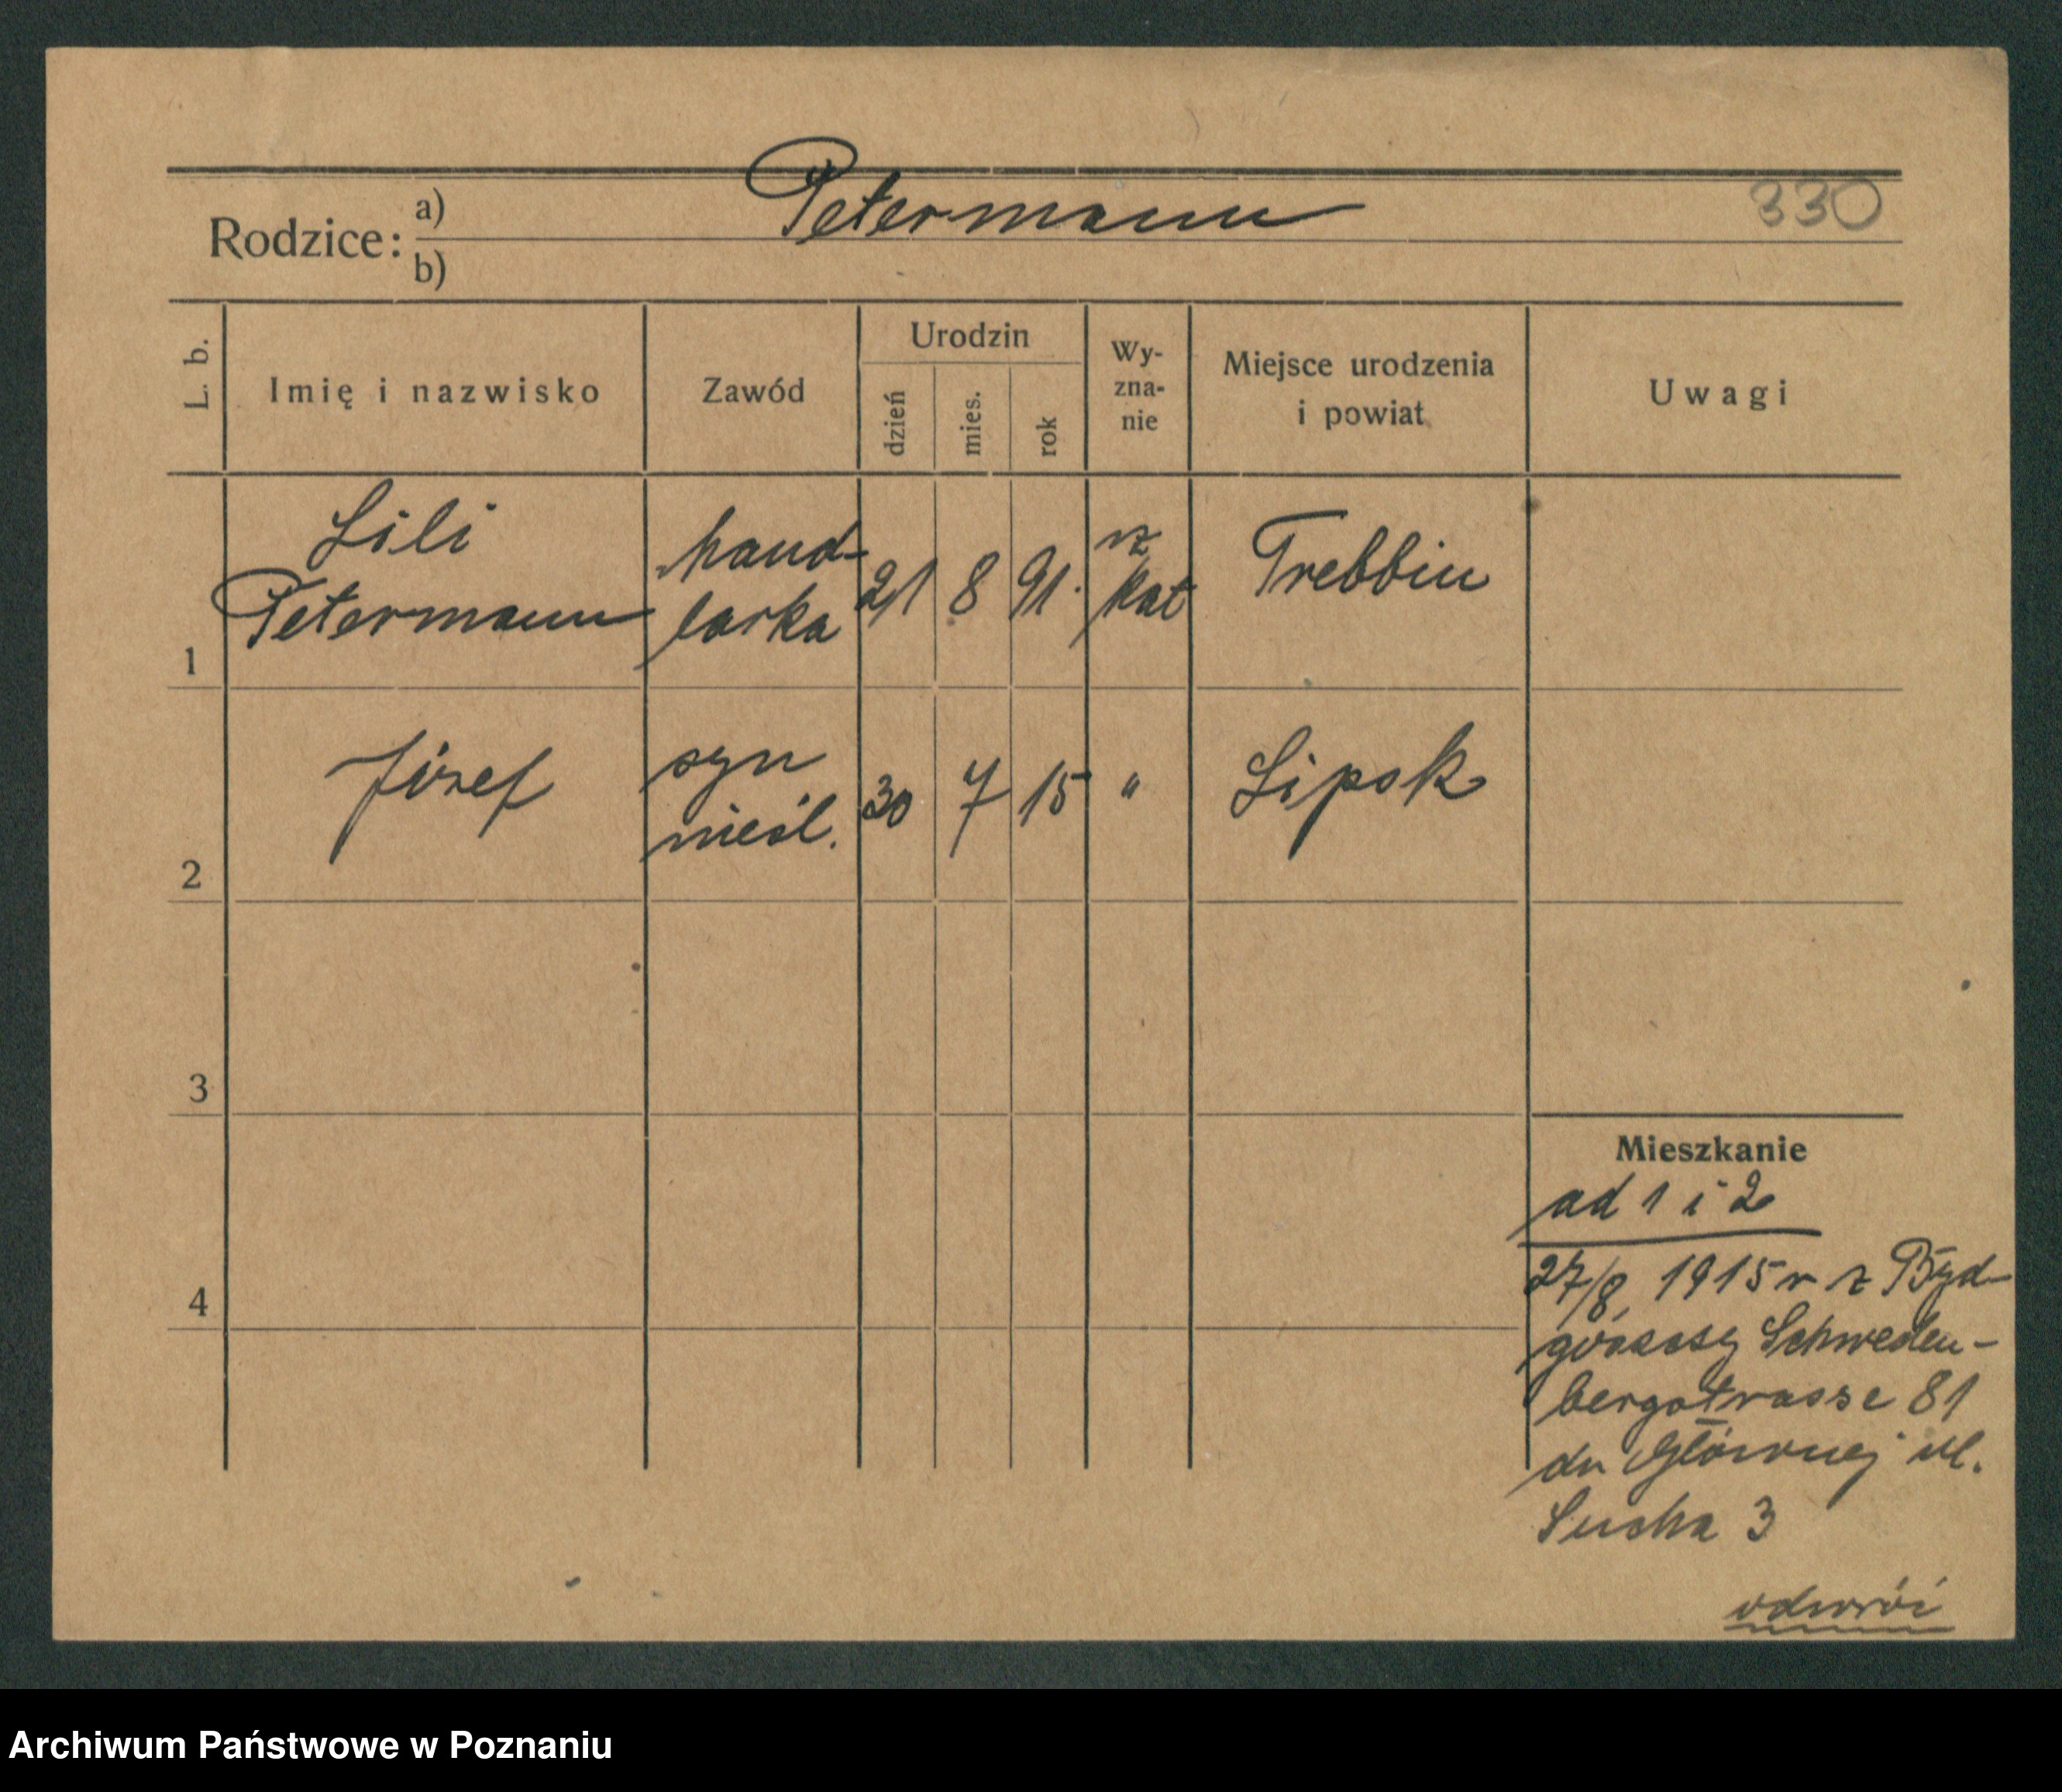 Petermann
330
Rodzice: a)
b)
L. b.
Imię i nazwisko
Zawód
Urodzin
dzień
mies.
rok
Wy-
zna-
nie
Miejsce urodzenia
i powiat
Uwagi
1
Lili
Petermann
hand-
larka
21
8
91.
rz
kat
Trebbin
2
Józef
syn
nieśl.
30
7
15
"
Lipsk
3
4
Mieszkanie
ad 1 i 2
27/8, 1915 r z Byd-
goszczy Schweden-
bergstrasse 81
do Głównej ul.
Sucha 3
odwróć
Archiwum Państwowe w Poznaniu